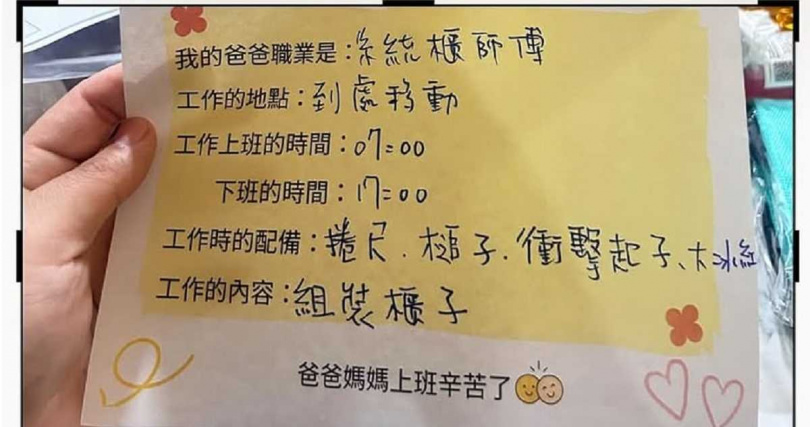 我的爸爸職業是:系統櫃師傅
工作的地點:到處移動
工作上班的時間:07:00
下班的時間:17:00
工作時的配備:捲尺.槌子.衝擊起子、大冰紅
工作的內容:組裝櫃子
爸爸媽媽上班辛苦了